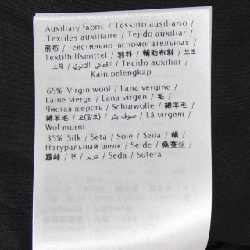 Auxiliary fabric / Tessuto ausiliario /
Textiles auxiliaire / Tejido auxiliar /
別布 / Текстильно-вспомогательных /
Textilhilfsmittel / 輔料 / 輔助布料 /
Tecido auxiliar /
Kain pelengkap
65% Virgin wool / Lana vergine /
Laine vierge / Lana virgen / 毛 /
Чистая шерсть / Schurwolle / 綿羊毛
/ 綿羊毛 / / صوف بكر / Lã virgem /
Wol murni
35% Silk / Seta / Soie / Seda / 絹 /
Натуральный шелк / Seide / 桑蠶絲 /
/ / حرير / Seda / Sutera